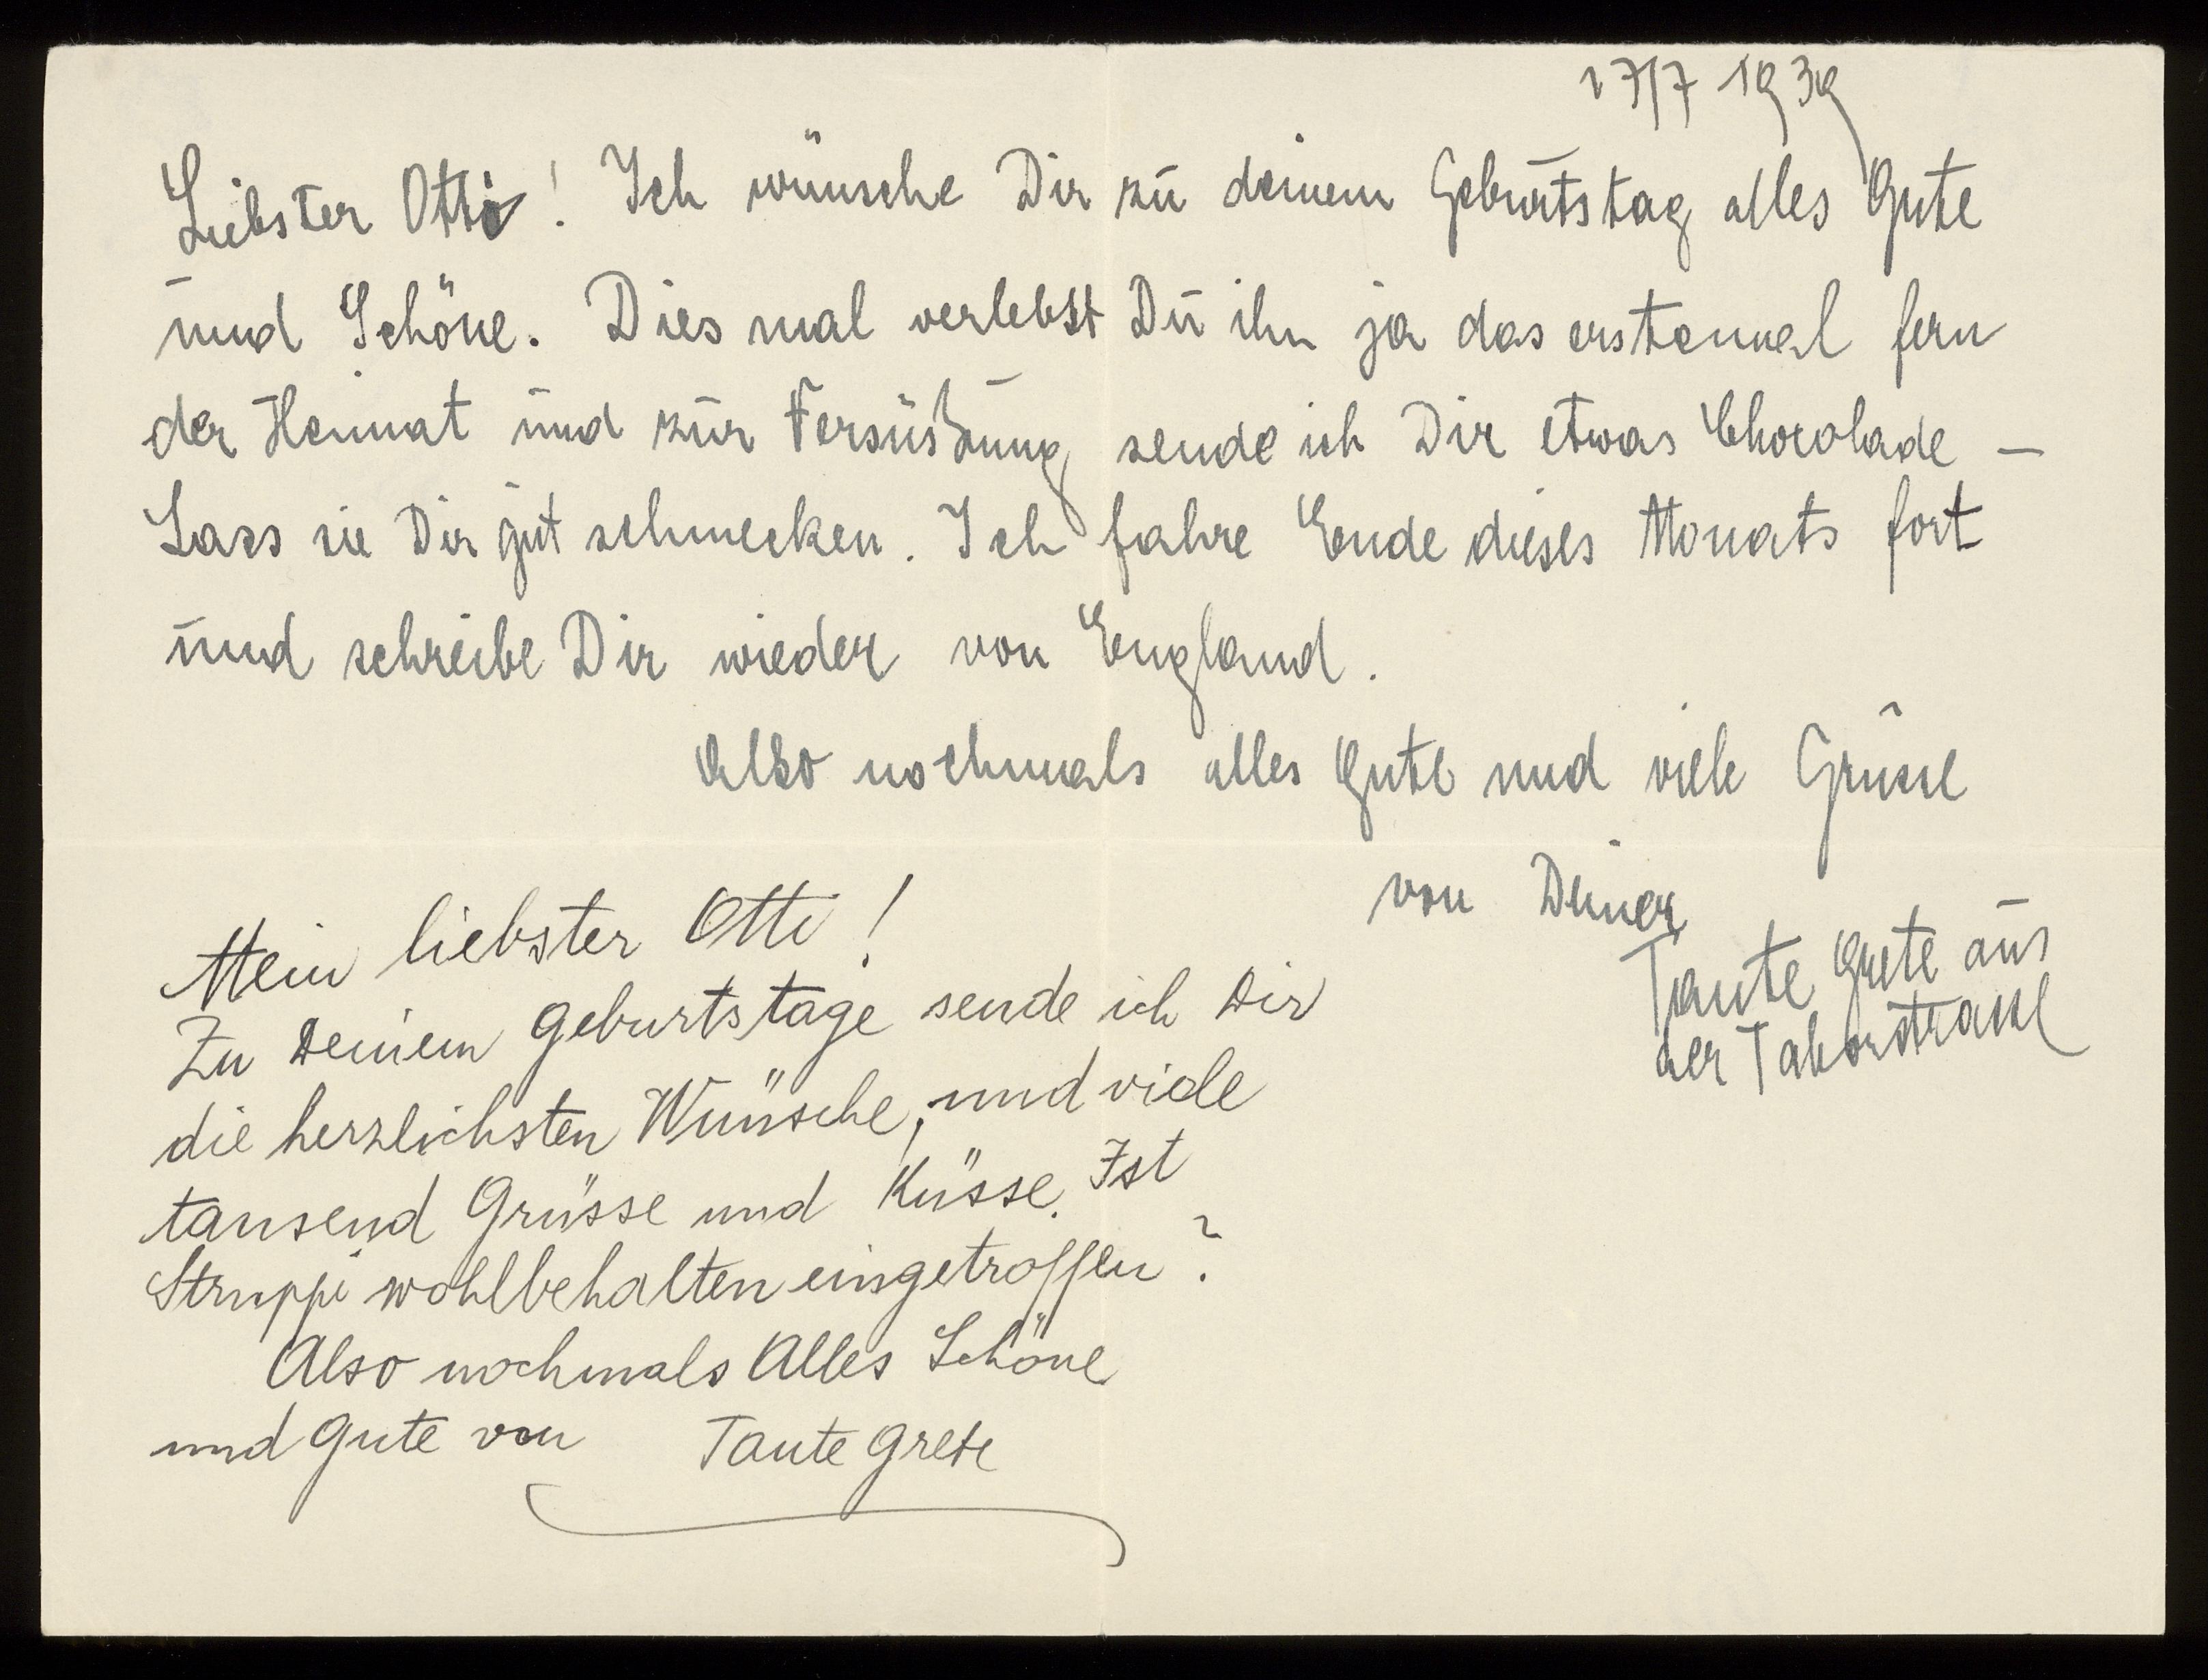 17/7 1939
Liebster Otti! Ich wünsche Dir zu deinem Geburtstag alles Gute
und Schöne. Dies mal verlebst Du ihn ja das erstemal fern
der Heimat und zur Versüssung sende ich Dir etwas Chocolade –
Lass sie Dir gut schmecken. Ich fahre Ende dieses Monats fort
und schreibe Dir wieder von England.
Also nochmals alles Gute und viele Grüsse
von Deiner
Tante Grete aus
der Taborstrasse
Mein liebster Otti!
Zu Deinem Geburtstage sende ich Dir
die herzlichsten Wünsche, und viele
tausend Grüsse und Küsse. Ist
Struppi wohlbehalten eingetroffen?
Also nochmals Alles Schöne
und Gute von Tante Grete